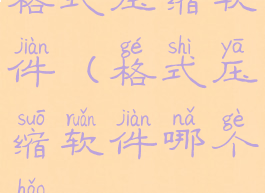 格式压缩软
jiàn gé shì yā
件（格式压
suō ruǎn jiàn nǎ gè
缩软件哪个
hǎo